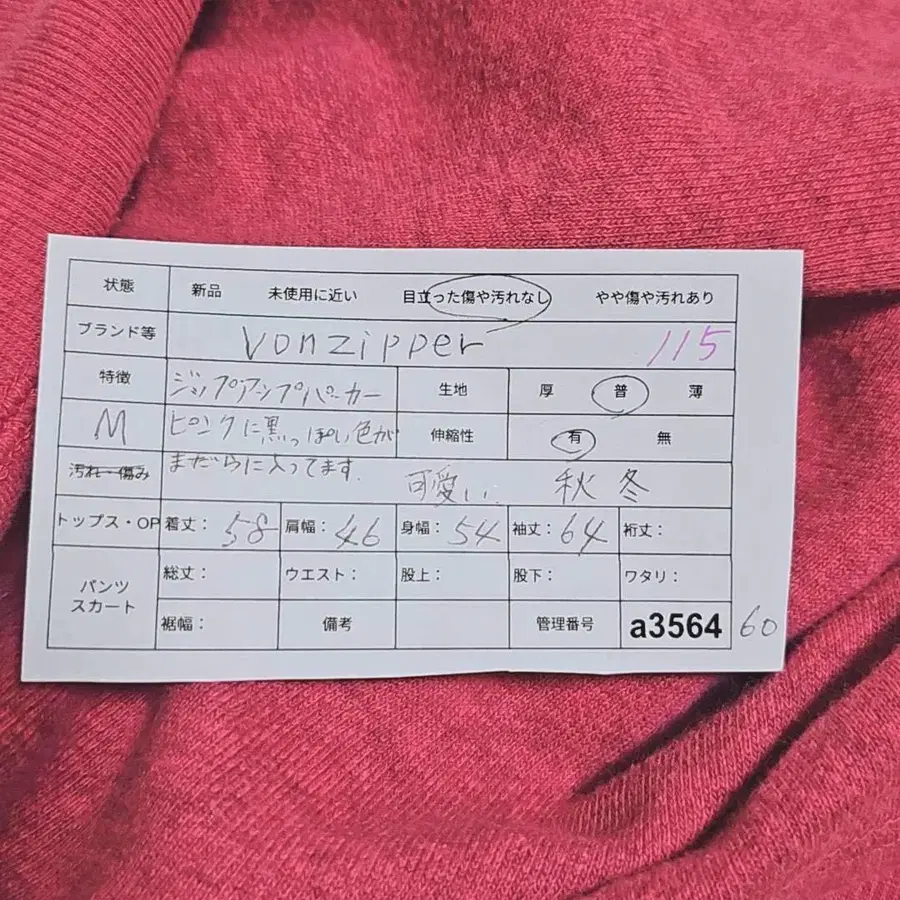 状態 新品 未使用に近い 目立った傷や汚れなし やや傷や汚れあり
ブランド等 vonzipper 115
特徴 ジップアップパーカー 生地 厚 普 薄
M ピンクに黒っぽい色が 伸縮性 有 無
汚れ・傷み まだらに入ってます. 可愛い. 秋冬
トップス・OP 着丈: 58 肩幅: 46 身幅: 54 袖丈: 64 裄丈:
パンツ スカート 総丈: ウエスト: 股上: 股下: ワタリ:
裾幅: 備考 管理番号 a3564 60